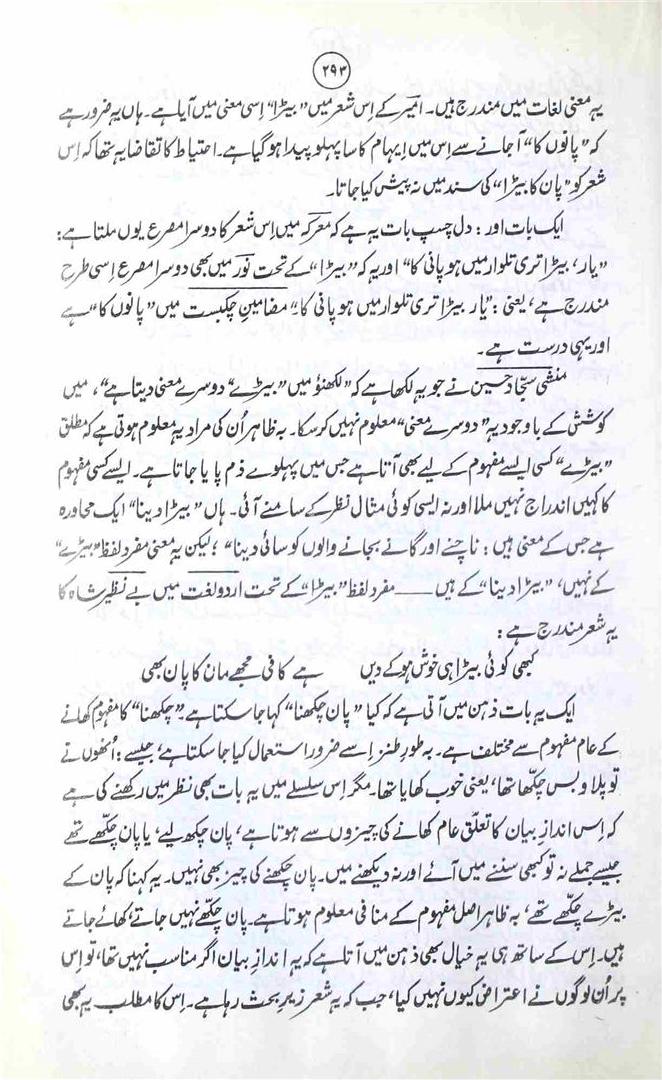 ۲۹۳
یہ معنی لغات میں مندرج ہیں۔ امیرؔ کے اِس شعر میں ”بیڑا“ اِسی معنی میں آیا ہے۔ ہاں یہ ضرور ہے
کہ ”پانوں کا“ آجانے سے اِس میں اِیہام کا سا پہلو پیدا ہو گیا ہے۔ احتیاط کا تقاضا یہ تھا کہ اِس
شعر کو ”پان کا بیڑا“ کی سند میں نہ پیش کیا جاتا۔
ایک بات اور : دل چسپ بات یہ ہے کہ معرکہ میں اِس شعر کا دوسرا مصرع یوں ملتا ہے :
”یار، بیڑا تری تلوار میں ہو پانی کا“ اور یہ کہ ”بیڑا“ کے تحت نور میں بھی دوسرا مصرع اِسی طرح
مندرج ہے، یعنی : ”یار بیڑا تری تلوار میں ہو پانی کا“۔ مضامینِ چکبست میں ”پانوں کا“ ہے
اور یہی درست ہے۔
منشی سجّاد حسین نے جو یہ لکھا ہے کہ ”لکھنؤ میں ”بیڑے“ دوسرے معنی دیتا ہے“، میں
کوشش کے باوجود یہ ”دوسرے معنی“ معلوم نہیں کر سکا۔ بہ ظاہر اُن کی مراد یہ معلوم ہوتی ہے کہ مطلق
”بیڑے“ کسی ایسے مفہوم کے لیے بھی آتا ہے جس میں پہلوے ذم پایا جاتا ہے۔ ایسے کسی مفہوم
کا کہیں اندراج نہیں ملا اور نہ ایسی کوئی مثال نظر کے سامنے آئی۔ ہاں ”بیڑا دینا“ ایک محاورہ
ہے جس کے معنی ہیں : ناچنے اور گانے بجانے والوں کو سائی دینا“ ؛ لیکن یہ معنی مفرد لفظ ”بیڑے“
کے نہیں، ”بیڑا دینا“ کے ہیں —— مفرد لفظ ”بیڑا“ کے تحت اردو لغت میں بے نظیر شاہ کا
یہ شعر مندرج ہے :
کبھی کوئی بیڑا ہی خوش ہو کے دیں ہے کافی مجھے مان کا پان بھی
ایک یہ بات ذہن میں آتی ہے کہ کیا ”پان چکھنا“ کہا جا سکتا ہے ”چکھنا“ کا مفہوم کھانے
کے عام مفہوم سے مختلف ہے۔ بہ طورِ طنز اِسے ضرور استعمال کیا جا سکتا ہے، جیسے : اُنھوں نے
تو پلاو بس چکھا تھا، یعنی خوب کھایا تھا۔ مگر اِس سلسلے میں یہ بات بھی نظر میں رکھنے کی ہے
کہ اِس اندازِ بیان کا تعلّق عام کھانے کی چیزوں سے ہوتا ہے، پان چکھ لیے، یا پان چکھے تھے
جیسے جملے نہ تو کبھی سننے میں آئے اور نہ دیکھنے میں۔ پان چکھنے کی چیز بھی نہیں۔ یہ کہنا کہ پان کے
بیڑے چکھے تھے، بہ ظاہر اصل مفہوم کے منافی معلوم ہوتا ہے۔ پان چکھے نہیں جاتے، کھائے جاتے
ہیں۔ اِس کے ساتھ ہی یہ خیال بھی ذہن میں آتا ہے کہ یہ اندازِ بیان اگر مناسب نہیں تھا، تو اِس
پر اُن لوگوں نے اعتراض کیوں نہیں کیا، جب کہ یہ شعر زیرِ بحث رہا ہے۔ اِس کا مطلب یہ بھی